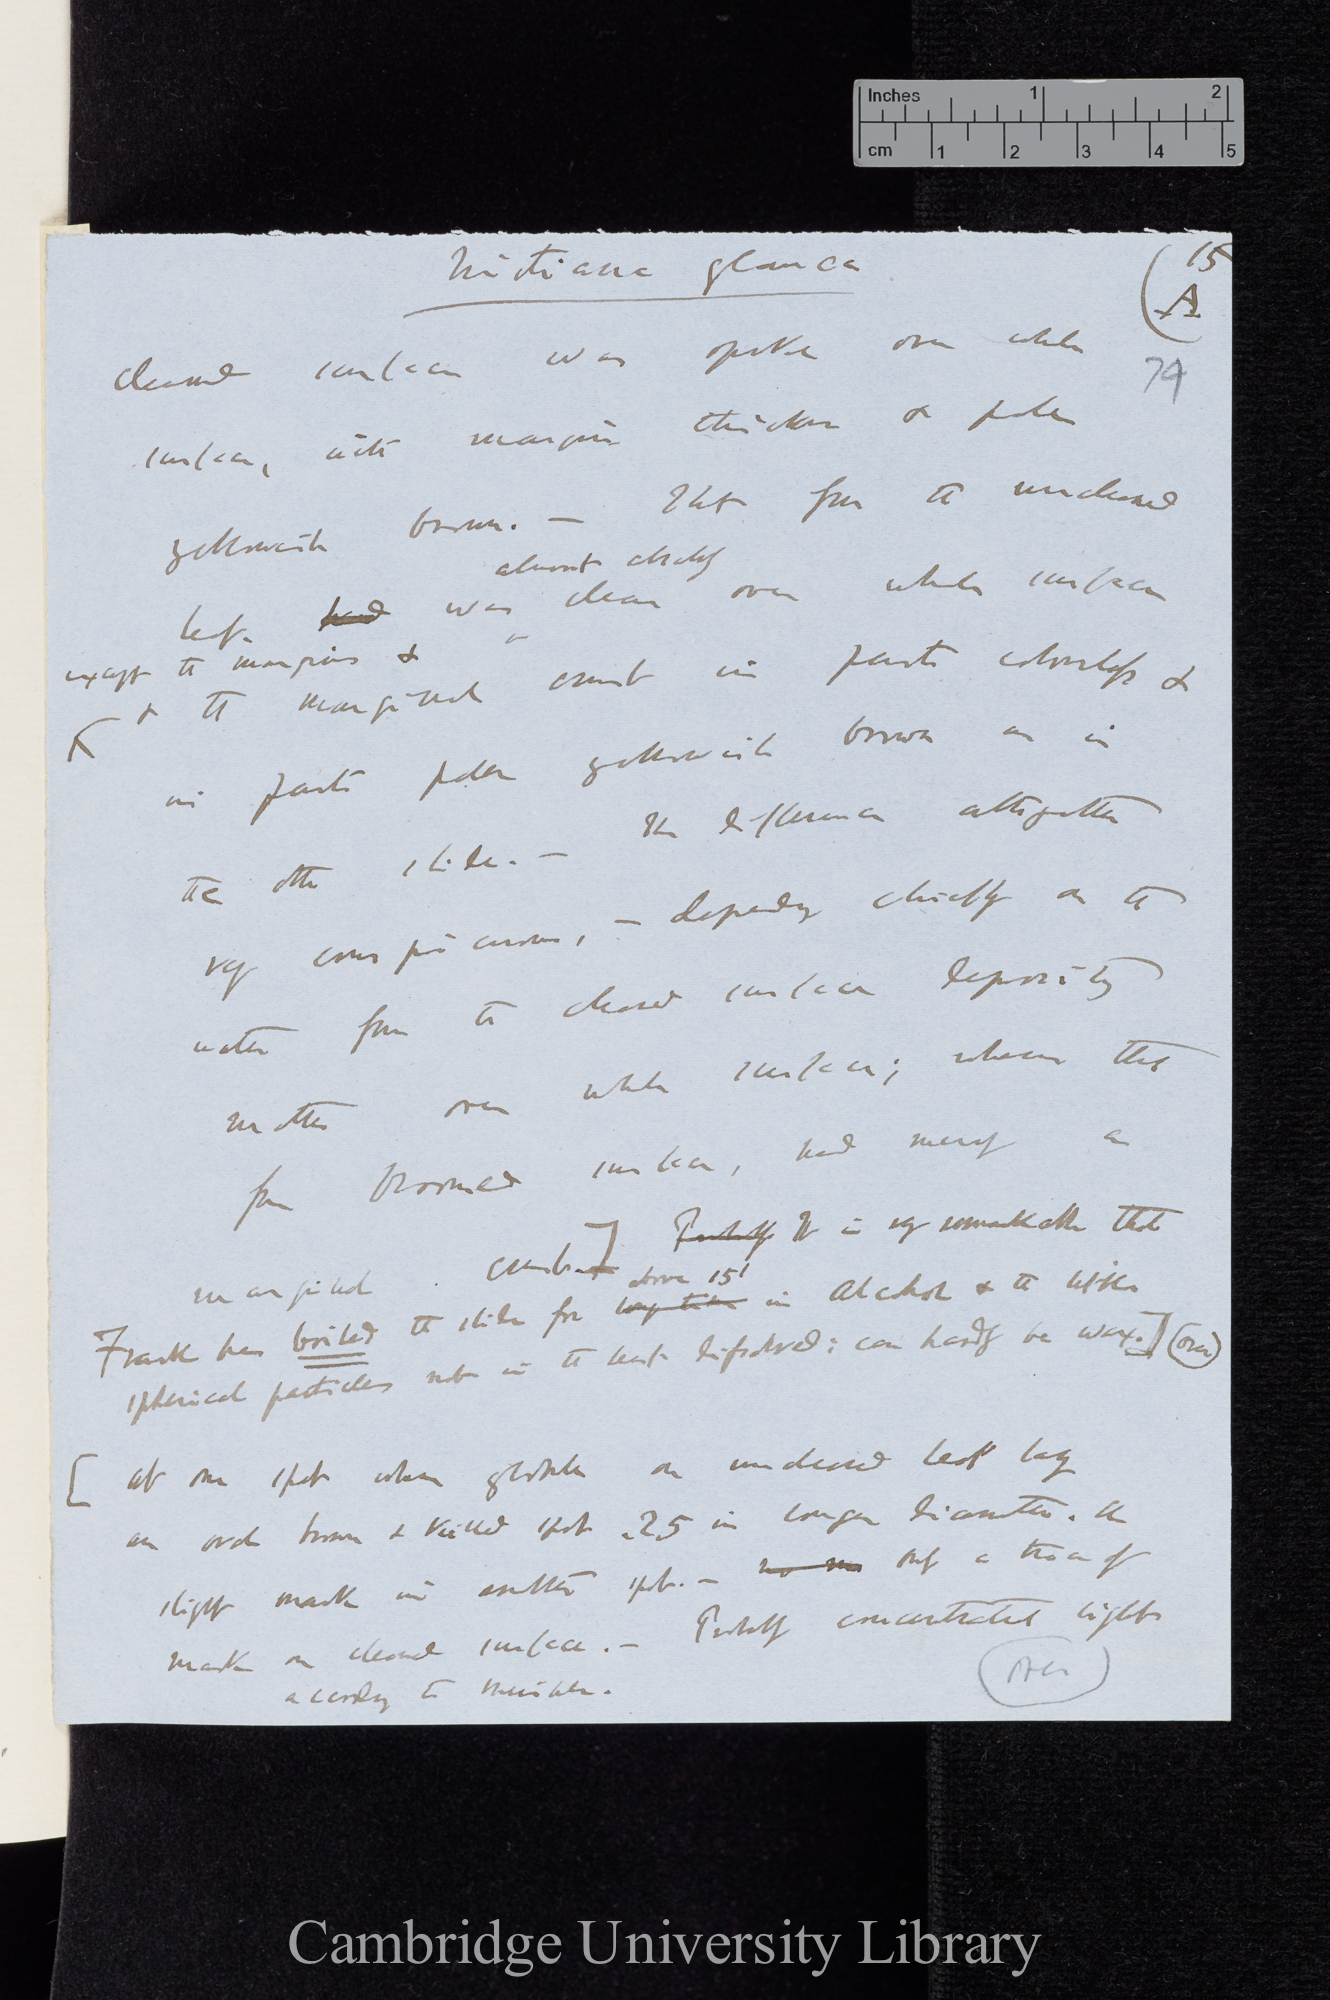 Inches 1 2
cm 1 2 3 4 5
Nicotiana glauca
(15
A
74
cleaned surface was spotted over whole
surface, with margin thicker & paler
yellowish brown. — That from the uncleaned
almost absolutely
leaf had was clean over whole surface
except the margins &
& the marginal crust in parts colourless &
in parts pale yellowish brown as in
the other slide. — The difference altogether
very conspicuous, — depending chiefly on the
water from the cleaned surface depositing
matter over whole surface; whereas that
from bloomed surface, had merely a
marginal crust.] Probably It is very remarkable that
above 15'
Frank has boiled the slide for long time in Alcohol & the little
spherical particles not in the least dissolved: can hardly be wax.] (over)
[ at one spot when globule on uncleaned leaf lay
an oval brown & killed spot .25 in longer diameter. a
slight mark in another spot. — no only a trace of
mark on cleaned surface. — Probably concentrated light
according to
over
Cambridge University Library